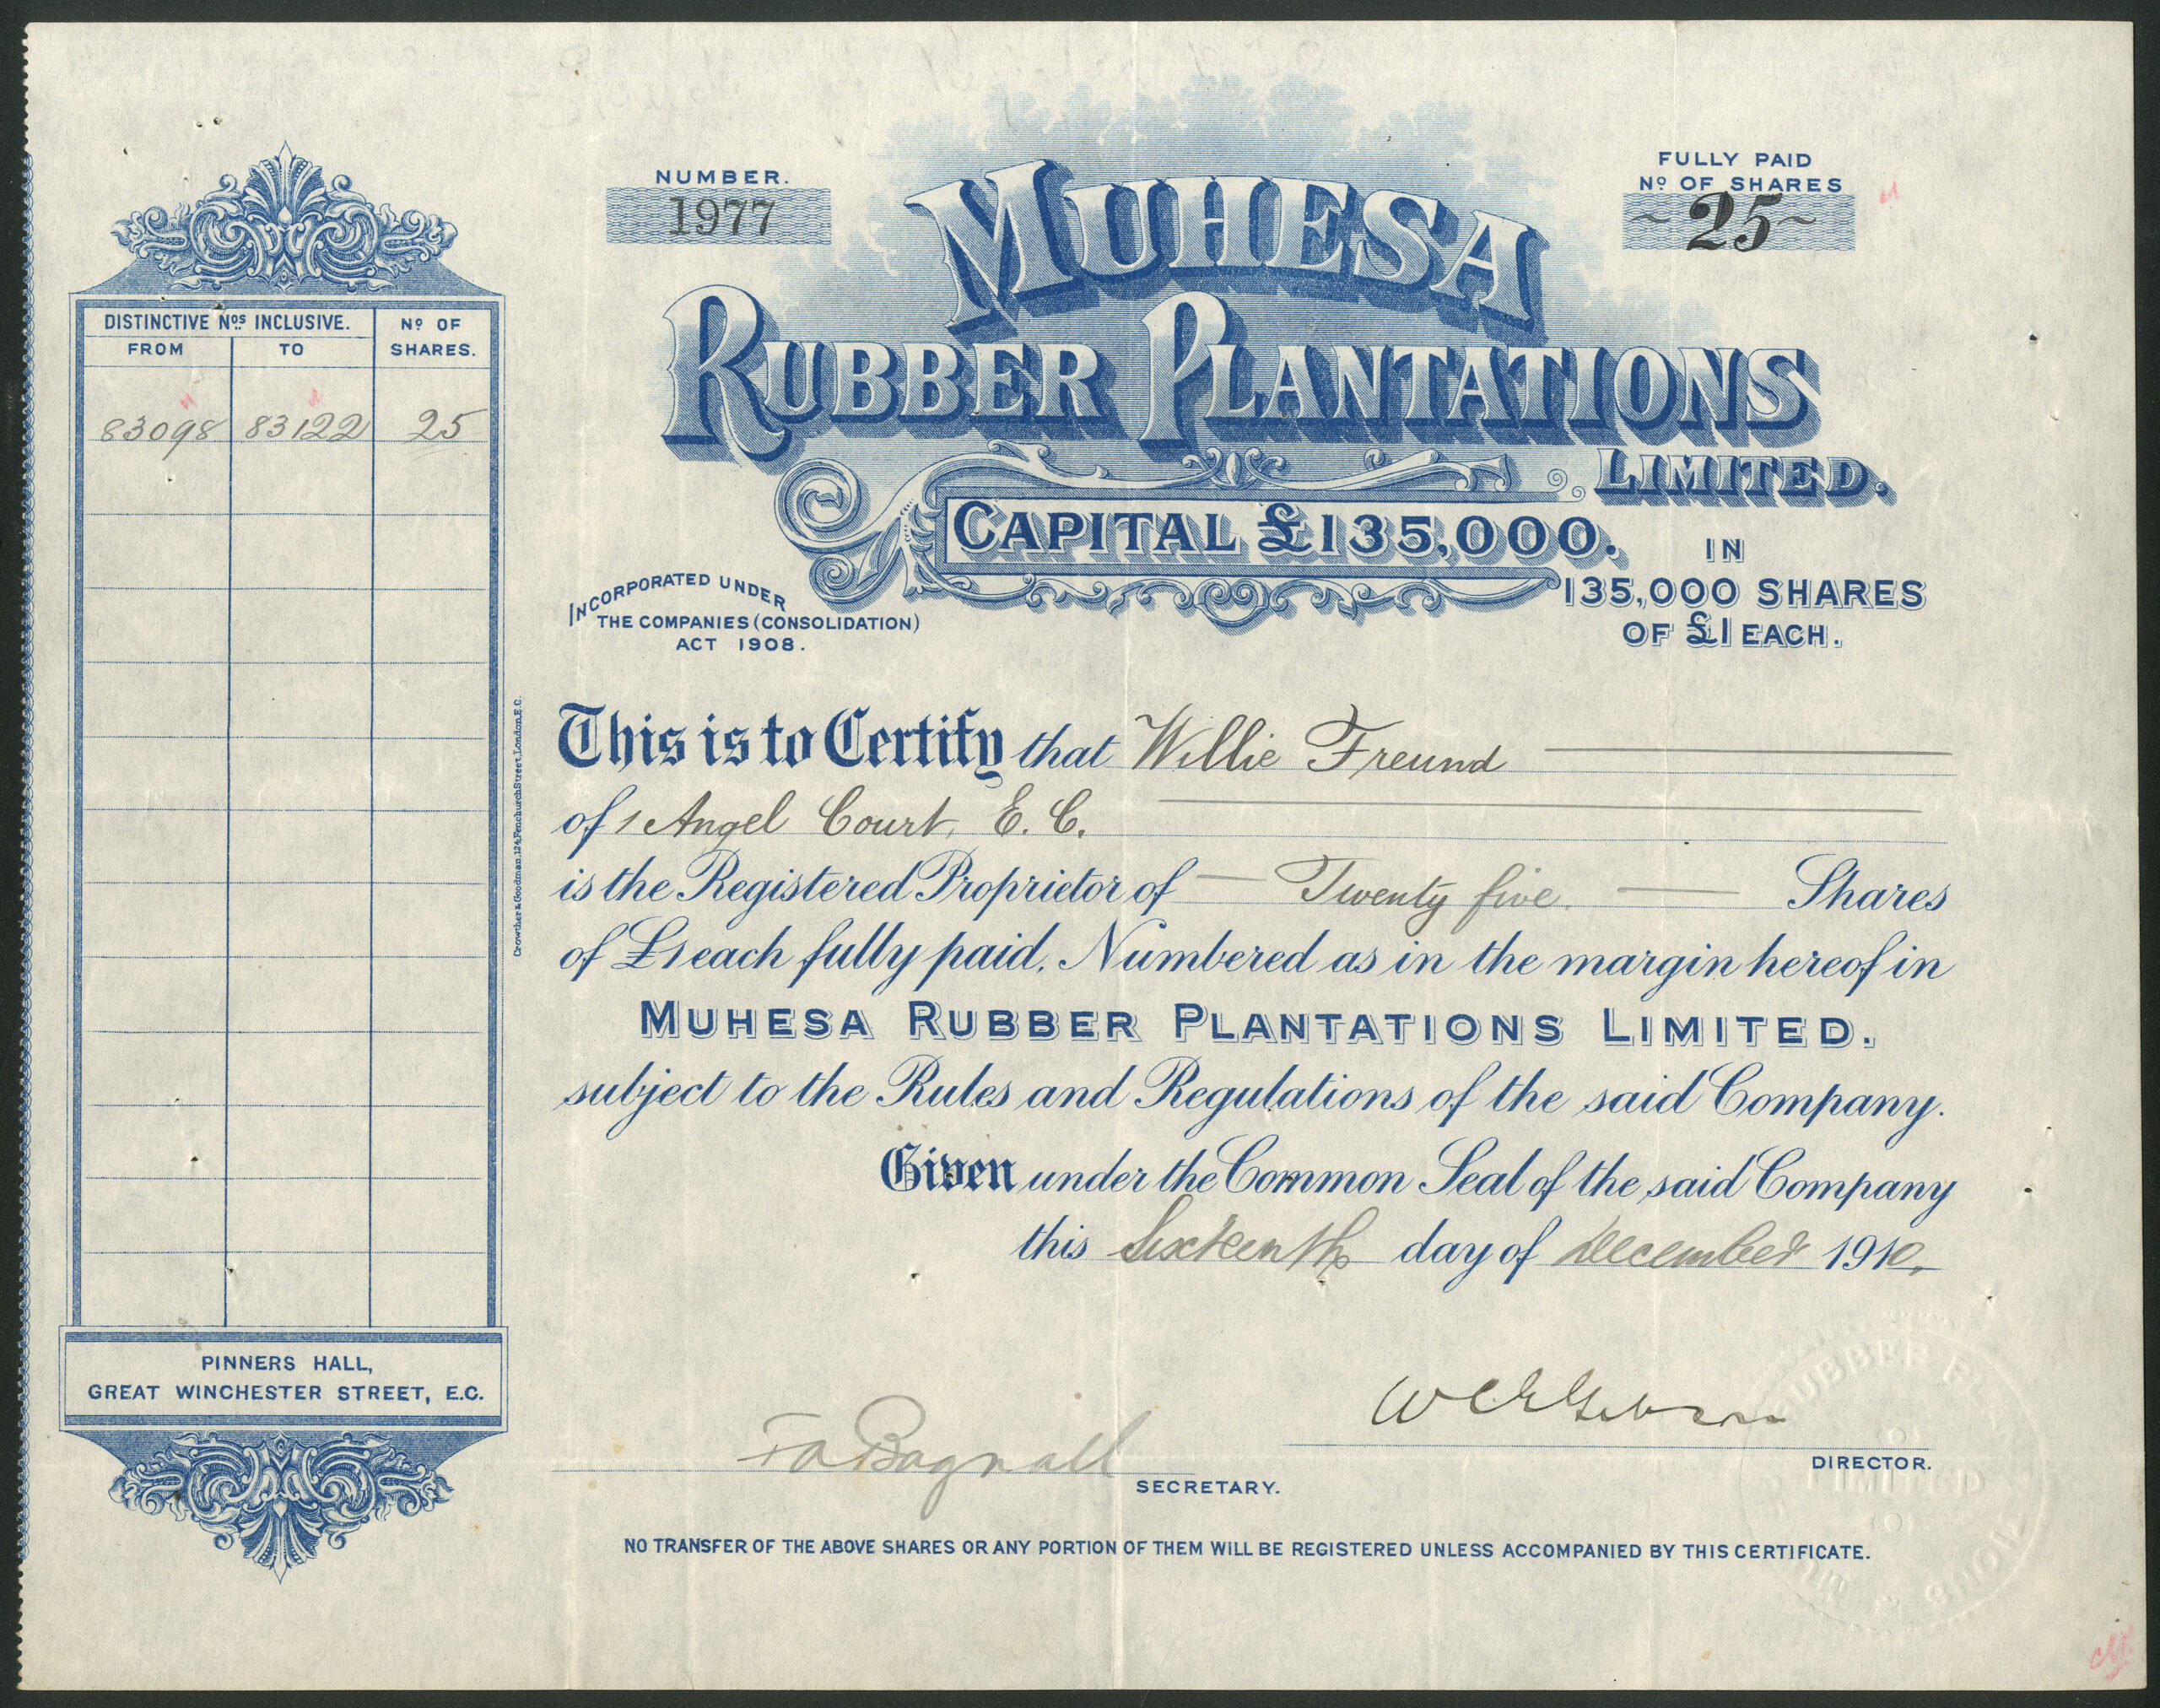 NUMBER.
1977
FULLY PAID
Nº OF SHARES
~25~
MUHESA
RUBBER PLANTATIONS
LIMITED.
CAPITAL £135,000.
IN
135,000 SHARES
OF £1 EACH.
INCORPORATED UNDER
THE COMPANIES (CONSOLIDATION)
ACT 1908.
DISTINCTIVE Nos INCLUSIVE.
Nº OF
SHARES.
FROM
TO
83098 83122 25
Crowther & Goodman, 124, Fenchurch Street, London, E.C.
This is to Certify that Willie Freund
of 1 Angel Court, E. C.
is the Registered Proprietor of — Twenty five. — Shares
of £1 each fully paid. Numbered as in the margin hereof in
MUHESA RUBBER PLANTATIONS LIMITED.
subject to the Rules and Regulations of the said Company.
Given under the Common Seal of the said Company
this Sixteenth day of December 1910.
PINNERS HALL,
GREAT WINCHESTER STREET, E.C.
Bagnall
SECRETARY.
DIRECTOR.
RUBBER
LIMITED
NO TRANSFER OF THE ABOVE SHARES OR ANY PORTION OF THEM WILL BE REGISTERED UNLESS ACCOMPANIED BY THIS CERTIFICATE.